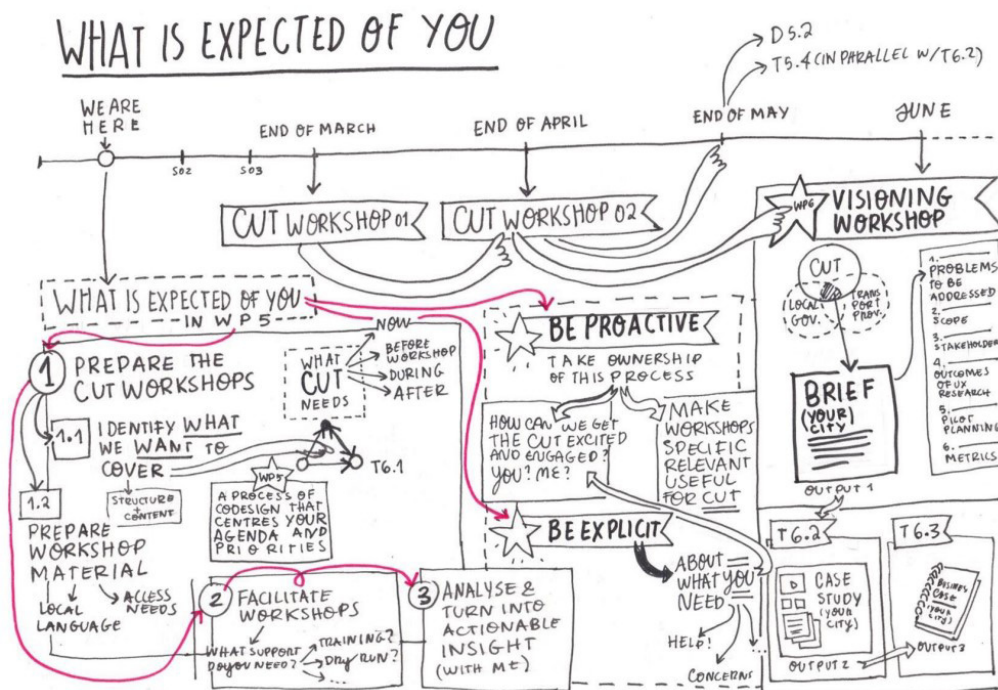 WHAT IS EXPECTED OF YOU
D5.2
T5.4 (IN PARALLEL W/T6.2)
WE ARE
HERE
S02
S03
END OF MARCH
END OF APRIL
END OF MAY
JUNE
CUT WORKSHOP 01
CUT WORKSHOP 02
WP6
VISIONING
WORKSHOP
WHAT IS EXPECTED OF YOU
IN WP5
1
PREPARE THE
CUT WORKSHOPS
1.1
IDENTIFY WHAT
WE WANT TO
COVER
STRUCTURE
+
CONTENT
1.2
PREPARE
WORKSHOP
MATERIAL
LOCAL
LANGUAGE
ACCESS
NEEDS
WHAT
CUT
NEEDS
NOW
BEFORE
WORKSHOP
DURING
AFTER
T6.1
WP5
A PROCESS OF
CODESIGN THAT
CENTRES YOUR
AGENDA AND
PRIORITIES
2
FACILITATE
WORKSHOPS
WHAT SUPPORT
DO YOU NEED?
TRAINING?
DRY RUN?
...
3
ANALYSE &
TURN INTO
ACTIONABLE
INSIGHT
(WITH ME)
BE PROACTIVE
TAKE OWNERSHIP
OF THIS PROCESS
HOW CAN WE GET
THE CUT EXCITED
AND ENGAGED?
YOU? ME?
MAKE
WORKSHOPS
SPECIFIC
RELEVANT
USEFUL
FOR CUT
BE EXPLICIT
ABOUT
WHAT YOU
NEED
HELP!
CONCERNS
...
CUT
LOCAL
GOV.
TRANS
PORT
PROV.
BRIEF
(YOUR
CITY)
OUTPUT 1
1.
PROBLEMS
TO BE
ADDRESSED
2.
SCOPE
3.
STAKEHOLDER
4.
OUTCOMES
OF UX
RESEARCH
5.
PILOT
PLANNING
6.
METRICS
T6.2
CASE
STUDY
(YOUR
CITY)
OUTPUT 2
T6.3
BUSINESS
CASE
(YOUR
CITY)
OUTPUT 3